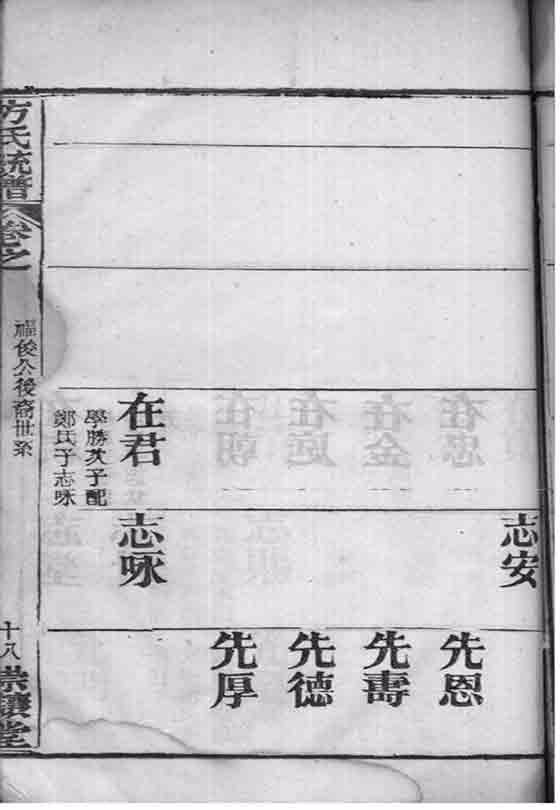 志安
先恩
先壽
先德
先厚
在君
學勝次子配
鄭氏子志咏
志咏
方氏統譜
卷之
福俊公後裔世系
十八
崇讓堂